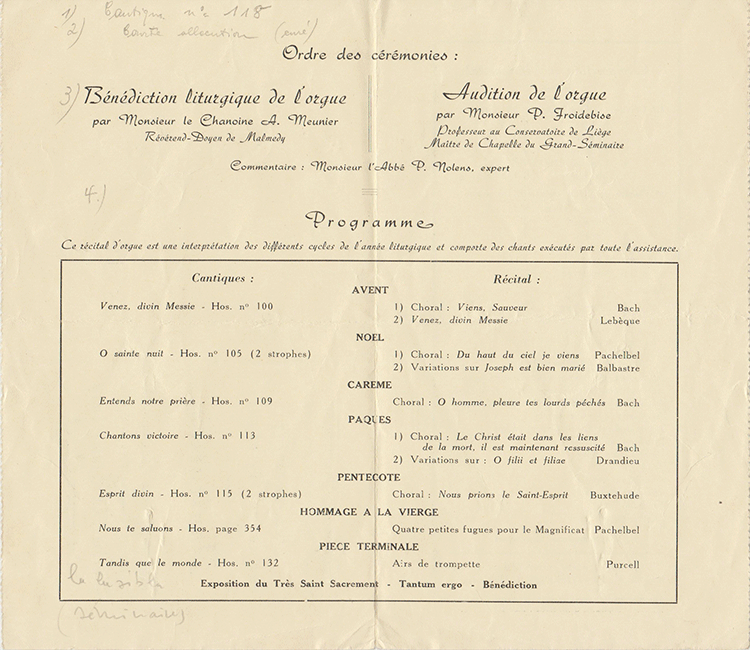 1) Cantique n° 118
2) Courte allocution (curé)
Ordre des cérémonies :
3) Bénédiction liturgique de l'orgue
par Monsieur le Chanoine A. Meunier
Révérend-Doyen de Malmedy
Audition de l'orgue
par Monsieur P. Froidebise
Professeur au Conservatoire de Liège
Maître de Chapelle du Grand-Séminaire
Commentaire : Monsieur l'Abbé P. Nolens, expert
4.)
Programme
Ce récital d'orgue est une interprétation des différents cycles de l'année liturgique et comporte des chants exécutés par toute l'assistance.
Cantiques : Récital :
AVENT
Venez, divin Messie - Hos. n° 100 1) Choral : Viens, Sauveur Bach
2) Venez, divin Messie Lebèque
NOEL
O sainte nuit - Hos. n° 105 (2 strophes) 1) Choral : Du haut du ciel je viens Pachelbel
2) Variations sur Joseph est bien marié Balbastre
CAREME
Entends notre prière - Hos. n° 109 Choral : O homme, pleure tes lourds péchés Bach
PAQUES
Chantons victoire - Hos. n° 113 1) Choral : Le Christ était dans les liens
de la mort, il est maintenant ressuscité Bach
2) Variations sur : O filii et filiae Drandieu
PENTECOTE
Esprit divin - Hos. n° 115 (2 strophes) Choral : Nous prions le Saint-Esprit Buxtehude
HOMMAGE A LA VIERGE
Nous te saluons - Hos. page 354 Quatre petites fugues pour le Magnificat Pachelbel
PIECE TERMINALE
Tandis que le monde - Hos. n° 132 Airs de trompette Purcell
Exposition du Très Saint Sacrement - Tantum ergo - Bénédiction
(séminaire)